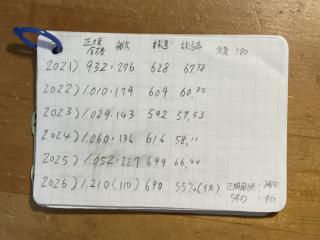 正規 拠欠 検名 検名率 定員 580
合格
2021) 932.276 628 67.78
2022) 1.010.179 609 60.30
2023) 1.029.143 592 57.53
2024) 1.060.136 616 58.11
2025) 1.052.227 699 66.44
2026) 1.210(110) 690 55%(1%) 正規最終 : 補欠
540 : 40